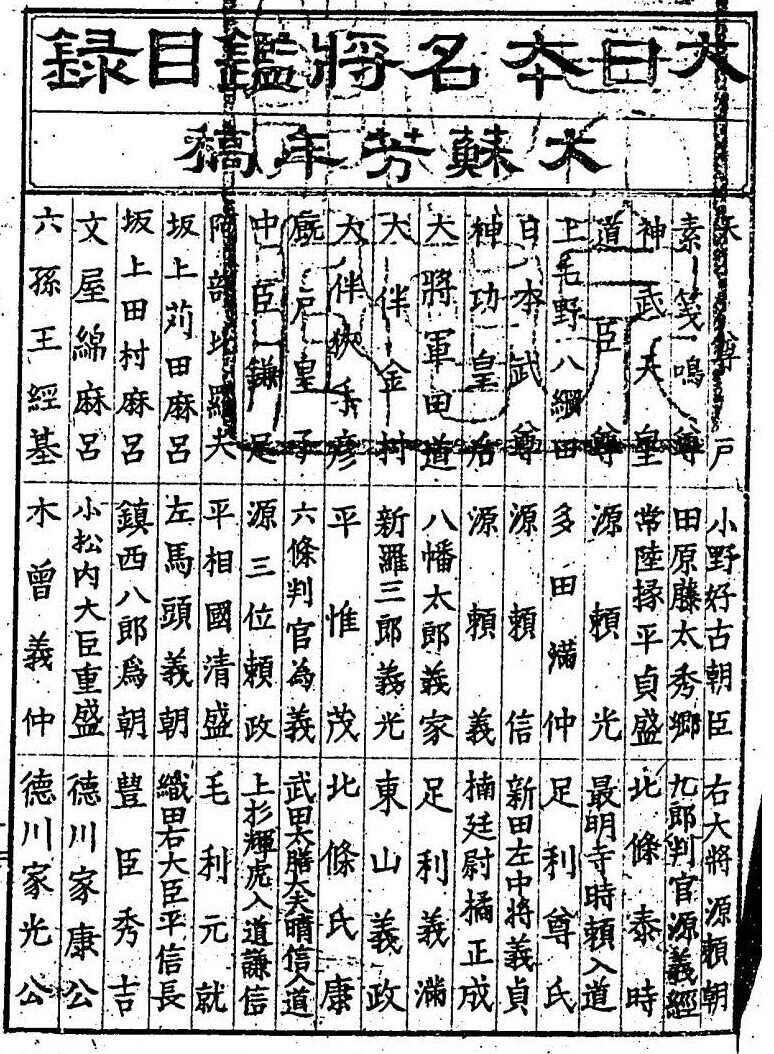 大日本名將鑑目録
大蘇芳年稿
素戔嗚尊
神武天皇
道臣尊
上毛野八綱田
日本武尊
神功皇后
大將軍田道
大伴金村
大伴狹手彦
厩戸皇子
中臣鎌足
阿部比羅夫
坂上苅田麻呂
坂上田村麻呂
文屋綿麻呂
六孫王經基
小野好古朝臣
田原藤太秀郷
常陸掾平貞盛
源頼光
多田滿仲
源頼信
源頼義
八幡太郎義家
新羅三郎義光
平惟茂
六條判官為義
源三位頼政
平相國清盛
左馬頭義朝
鎮西八郎爲朝
小松内大臣重盛
木曾義仲
右大將源頼朝
九郎判官源義經
北條泰時
最明寺時頼入道
足利尊氏
新田左中將義貞
楠廷尉橘正成
足利義滿
東山義政
北條氏康
武田大膳大夫晴信入道
上杉輝虎入道謙信
毛利元就
織田右大臣平信長
豊臣秀吉
德川家康公
德川家光公